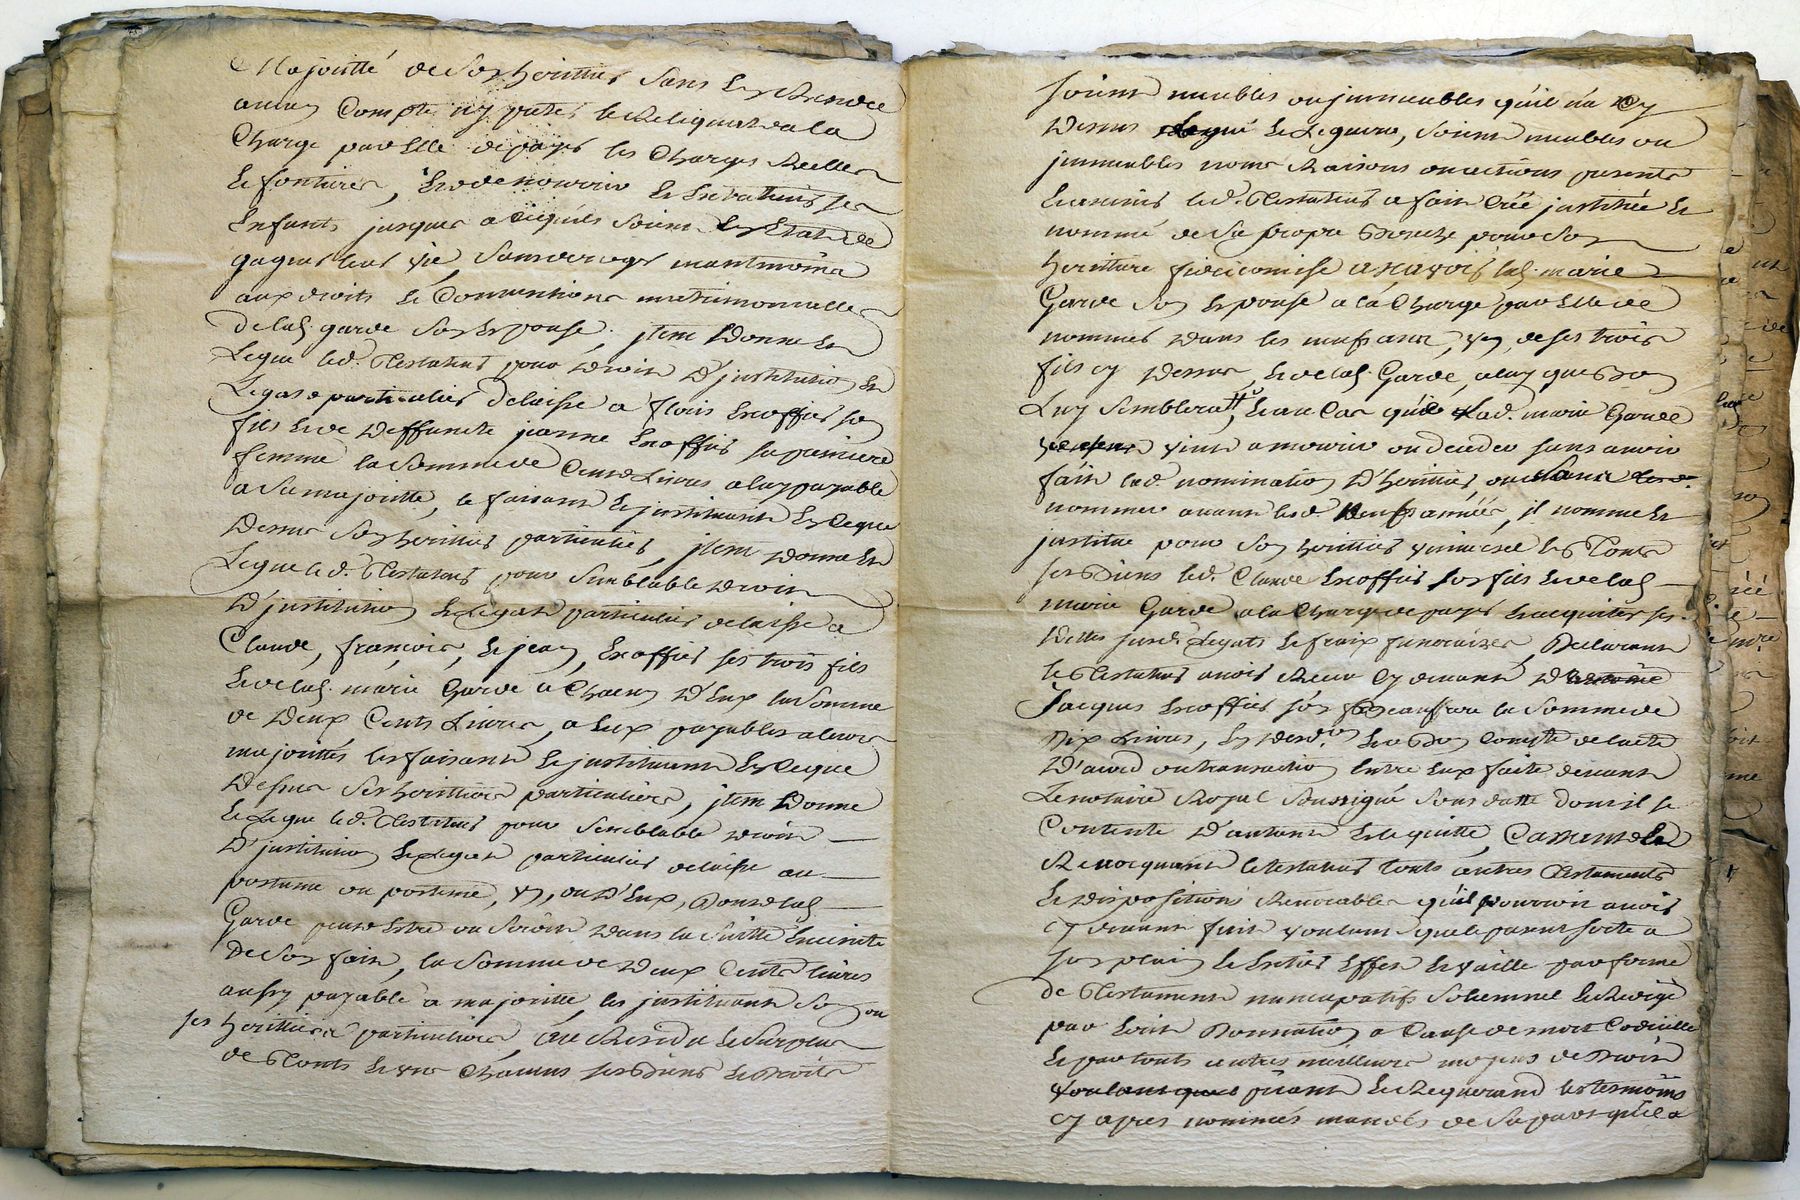 Majoritté de son herittier sans En Rendre
aucun Compte ny preter le Reliquat a la
Charge par Elle de payer les Charges Reelles
Et fontieres, Et de nourrir Et Entretenir ses
Enfants jusques a ce qu'ils soient En Etat de
gagner leur vie, sans deroger
aux droits Et Conventions matrimonnielles
de lad. garde son Epouse, jtem Donne Et
Legue led. Testateur pour Droit D'justitution Et
Legat particulier delaisse a Excoffier son
fils Et de Deffuncte jeanne Excoffier sa premiere
femme la somme de Cent Livres a luy payable
a sa majoritte, le faisant Et justituant En Ce que
Dessus son herittier particulier, jtem Donne Et
Legue led. Testateur pour semblable Droit
D'justitution Et Legat particulier delaisse a
Claude, françois, Et jean, Excoffier ses trois fils
Et de lad. marie Garde a Chacun D'Eux la somme
de Deux Cents Livres, a Eux payables a leur
majoritté, les faisant Et justituant En Ce que
Dessus ses herittiers particuliers, jtem Donne
Et Legue led. Testateur pour semblable Droit
D'justitution Et Legat particulier delaisse au
postume ou postume, un, ou D'Eux, Dont lad.
Garde peut Estre ou seroit Dans la suitte Enceinte
de son fait, la somme de Deux Cents livres
aussy payable a majoritte les justituant son ou
ses herittiers particuliers, au Residu Et surplus
de Touts Et uns Chacuns ses Biens Et Droits
soient meubles ou jmmeubles qu'il n'a Cy
Dessus Legué, soient meubles ou
jmmeubles noms Raisons ou actions presents
Et avenirs led. Testateur a fait Créé justitué Et
nommé de sa propre Bouche pour son
herittiere fideicomise a sçavoir lad. marie
Garde son Epouse a la Charge par Elle de
nommer Dans les un de ses trois
fils cy Dessus, Et de lad. Garde, a luy que Bon
Luy semblerat, Et au Cas que lad. marie Garde
vint a mourir ou deceder sans avoir
fait lad. nomination D'herittier, ou
nommer avant lesd. années, il nomme Et
justitue pour son herittier universel En Touts
ses Biens led. Claude Excoffier son fils Et de lad.
marie Garde a la Charge de payer Et acquitter ses
Dettes susd. Legats Et fraix funeraires, Declarant
le Testateur avoir Receu Cy devant D
Jacques Excoffier son Beaufrere la somme de
Dix Livres, Et Bon Compte de l'acte
D'acord ou transaction Entre Eux faite devant
Le notaire Royal soussigné sous datte dont il se
Contente D'autant Et le quitte, Cassant
Revocquant le testateur touts autres Testaments
Et Dispositions Revocables qu'il pourroit avoir
cy devant fait voulant que le present sorte a
son plein Et Entier Effet Et vaille par forme
de Testament nuncupatif solemnel Et Redigé
par Ecrit Donnation a Cause de mort Codicille
Et par touts autres meilleurs moyens de Droit
priant Et Requerant les tesmoins
cy apres nommés mandés de sa part qu'il a